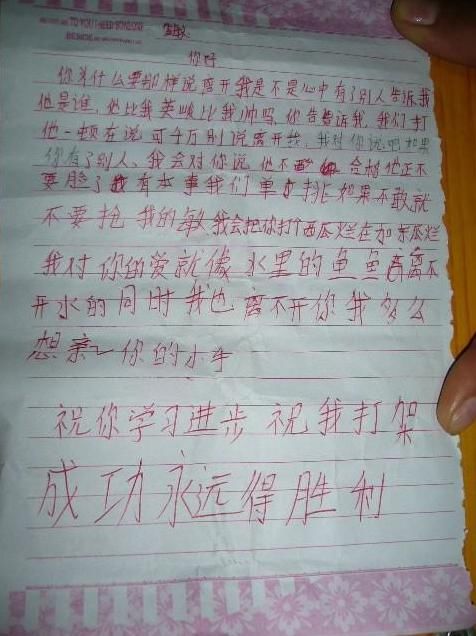 TO YOU I NEED SOMEONE
敏
你好
你为什么要那样说离开我是不是心中有了别人告诉我
他是谁,他比我英峻比我帅吗,你告告诉我,我们打
他一顿在说可千万别说离开我,我对你说吧如果
你有了别人、我会对你说他不 合格他正不
要脸了我有本事我们单才挑如果不敢就
不要抢我的敏我会把你打个西瓜烂在加东瓜烂
我对你的爱就像水里的鱼鱼离不
开水的同时我也离不开你我多么
想亲一你的小手
祝你学习进步祝我打架
成功永远得胜利